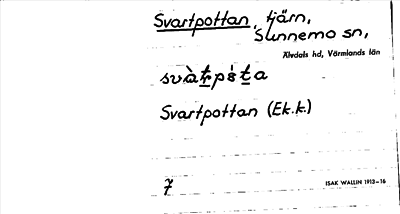 Svartpottan, tjärn,
Sunnemo sn,
Älvdals hd, Värmlands län
Svartpottan (Ek.k.)
7
ISAK WALLIN 1913–16